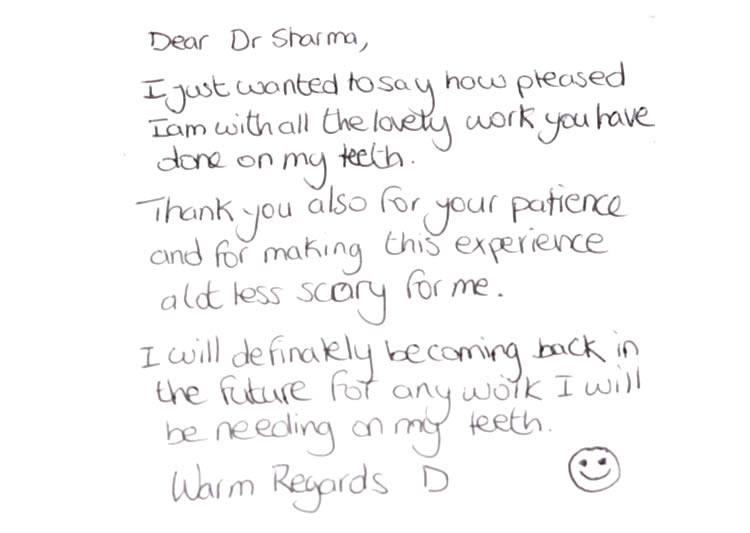 Dear Dr Sharma,
I just wanted to say how pleased
I am with all the lovely work you have
done on my teeth.
Thank you also for your patience
and for making this experience
a lot less scary for me.
I will definately be coming back in
the future for any work I will
be needing on my teeth.
Warm Regards D